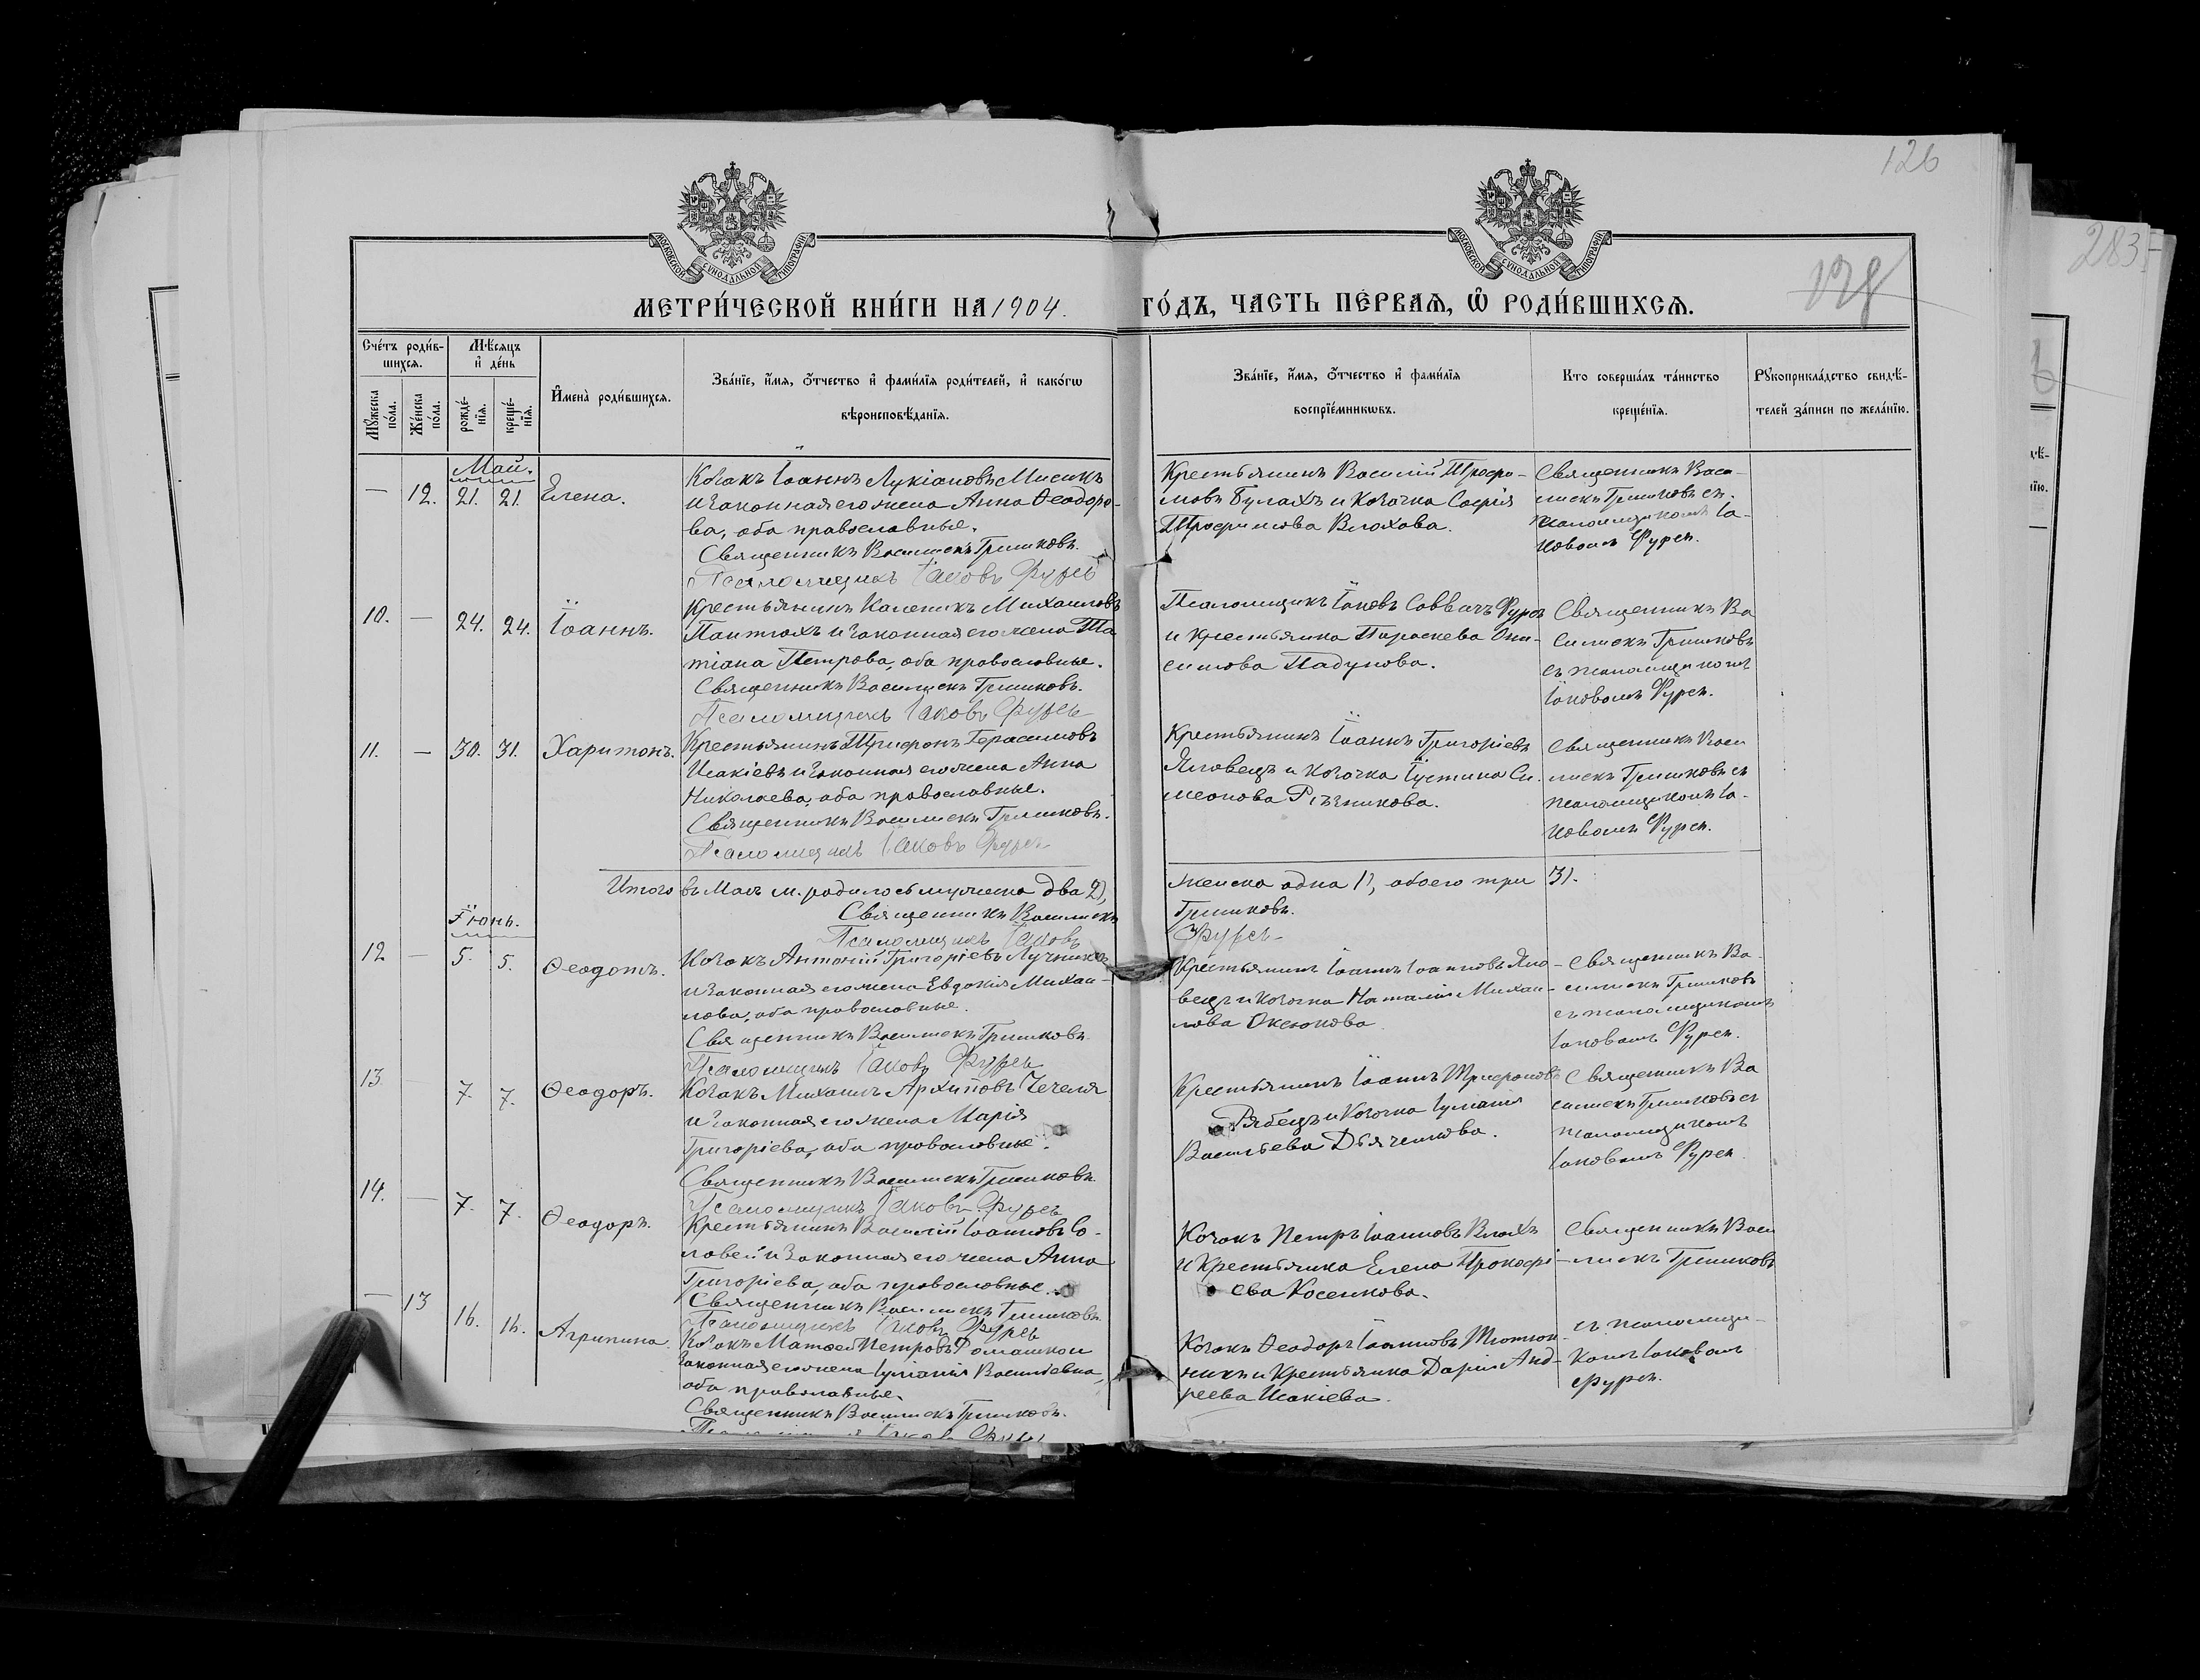 126
283
128
МОСКОВСКОЙ СѴНОДАЛЬНОЙ ТИПОГРАФІИ
МОСКОВСКОЙ СѴНОДАЛЬНОЙ ТИПОГРАФІИ
МЕТРИ́ЧЕСКОЙ КНИ́ГИ НА 1904. ГО́ДЪ, ЧАСТЬ ПЕ́РВАѦ, Ѡ҆ РОДИ́ВШИХСѦ.
Сче́тъ роди́в-
шихсѧ.
Мꙋ́жеска по́ла.
Же́нска по́ла.
Мѣ́сѧцъ
и҆ де́нь
рожде́-
нїѧ.
креще́-
нїѧ.
И҆мена̀ роди́вшихсѧ.
Зва́нїе, и҆́мѧ, ѻ҆́тчество и҆ фами́лїѧ роди́телей, и҆ како́гѡ
вѣроисповѣ́данїѧ.
Зва́нїе, и҆́мѧ, ѻ҆́тчество и҆ фами́лїѧ
воспрїе́мникѡвъ.
Кто соверша́лъ та́инство
креще́нїѧ.
Рꙋкоприкла́дство свидѣ́-
телей за́писи по жела́нїю.
Май.
— 12. 21. 21. Елена.
Козакъ Іоаннъ Лукіановъ Мисикъ
и законная его жена Анна Ѳеодоро-
ва, оба православные.
Священникъ Василискъ Гришковъ.
Псаломщикъ Іаковъ Фурсъ
Крестьянинъ Василій Трофи-
мовъ Булахъ и козачка Софія
Трофимова Влохова.
Священникъ Васи-
лискъ Гришковъ съ
псаломщикомъ Іа-
ковомъ Фурсъ.
10. — 24. 24. Іоаннъ.
Крестьянинъ Каленикъ Михаиловъ
Пантюхъ и законная его жена Та
тіана Петрова, оба православные.
Священникъ Василискъ Гришковъ.
Псаломщикъ Іаковъ Фурсъ
Псаломщикъ Іаковъ Саввичъ Фурсъ
и крестьянка Параскева Они-
симова Падунова.
Священникъ Ва
силискъ Гришковъ
съ псаломщикомъ
Іаковомъ Фурсъ.
11. — 30. 31. Харитонъ.
Крестьянинъ Трифонъ Герасимовъ
Исакіевъ и законная его жена Анна
Николаева, оба православные.
Священникъ Василискъ Гришковъ.
Псаломщикъ Іаковъ Фурсъ
Крестьянинъ Іоаннъ Григоріевъ
Яловецъ и козачка Іустина Си-
меонова
Священникъ Васи
лискъ Гришковъ съ
псаломщикомъ Іа-
ковомъ Фурсъ.
Итого въ Маѣ м. родилось мужеска два 2), женска одна 1), обоего три 3).
Священникъ Василискъ Гришковъ.
Псаломщикъ Іаковъ Фурсъ
Іюнь.
12 — 5. 5. Ѳеодотъ.
Козакъ Антоній Григоріевъ Лучникъ
и законная его жена Евдокія Михаи-
лова, оба православные.
Священникъ Василискъ Гришковъ.
Псаломщикъ Іаковъ Фурсъ
Крестьянинъ Іоаннъ Іоанновъ Яло-
вецъ и козачка Наталія Михаи-
лова Оксюкова
Священникъ Ва-
силискъ Гришковъ
съ псаломщикомъ
Іаковомъ Фурсъ.
13 7. 7. Ѳеодоръ.
Козакъ Михаилъ Архиповъ Чечеля
и законная его жена Марія
Григоріева, оба православные.
Священникъ Василискъ Гришковъ.
Псаломщикъ Іаковъ Фурсъ
Крестьянинъ Іоаннъ Трифоновъ
Рябецъ и козачка Іуліанія
Васильева Дьяченкова.
Священникъ Ва
силискъ Гришковъ съ
псаломщикомъ
Іаковомъ Фурсъ
14. — 7. 7. Ѳеодоръ.
Крестьянинъ Василій Іоанновъ Со-
ловей и законная его жена Анна
Григоріева, оба православные.
Священникъ Василискъ Гришковъ.
Псаломщикъ Іаковъ Фурсъ
Козакъ Петръ Іоанновъ Влохъ
и крестьянка Елена Прокофі-
ева Косенкова.
Священникъ Васи
лискъ Гришковъ
съ псаломщи-
комъ Іаковомъ
Фурсъ.
— 13 16. 16. Агрипина.
Козакъ Матѳей Петровъ Ромашко и
законная его жена Іуліанія Васильевна,
оба православные.
Священникъ Василискъ Гришковъ.
Псаломщикъ Іаковъ Фурсъ
Козакъ Ѳеодоръ Іоанновъ Тютюн-
никъ и крестьянка Дарія Анд-
реева Исакіева.